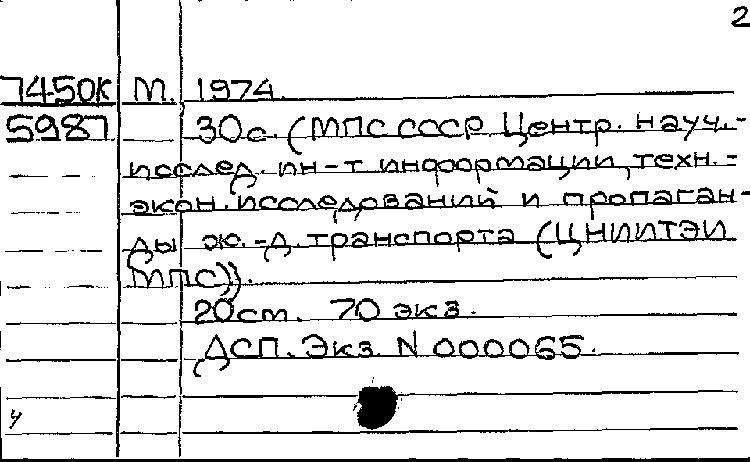 2
7450К М. 1974.
5987 30с. (МПС СССР. Центр. науч.-
исслед. ин-т информации, техн.-
экон. исследований и пропаган-
ды ж.-д. транспорта (ЦНИИТЭИ
МПС)).
20см. 70 экз.
ДСП. Экз. N 000065.